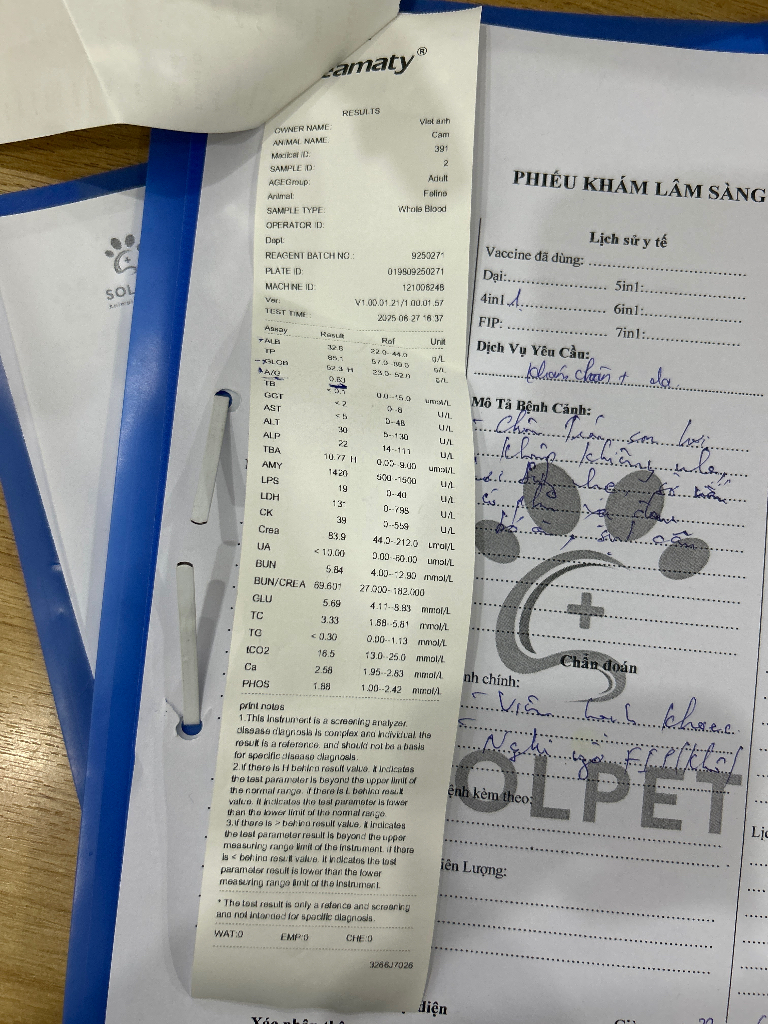 eamaty®
RESULTS
OWNER NAME: Viet anh
ANIMAL NAME: Cam
Medical ID: 391
SAMPLE ID: 2
AGEGroup: Adult
Animal: Feline
SAMPLE TYPE: Whole Blood
OPERATOR ID:
Dept:
REAGENT BATCH NO.: 9250271
PLATE ID: 019809250271
MACHINE ID: 121006248
Ver: V1.00.01.21/1.00.01.57
TEST TIME: 2025 06 27 16:37
Assay Result Ref Unit
ALB 32.8 22.0--44.0 g/L
TP 85.1 57.0--89.0 g/L
GLOB 52.3 H 23.0--52.0 g/L
A/G 0.63
TB 0.0--15.0 umol/L
GGT < 2 0--8 U/L
AST < 5 0--48 U/L
ALT 30 5--130 U/L
ALP 22 14--111 U/L
TBA 10.77 H 0.00--9.00 umol/L
AMY 1420 500--1500 U/L
LPS 19 0--40 U/L
LDH 0--798 U/L
CK 39 0--559 U/L
Crea 83.9 44.0--212.0 umol/L
UA < 10.00 0.00--60.00 umol/L
BUN 5.84 4.00--12.90 mmol/L
BUN/CREA 69.601 27.000--182.000
GLU 5.69 4.11--8.83 mmol/L
TC 3.33 1.68--5.81 mmol/L
TG < 0.30 0.00--1.13 mmol/L
tCO2 16.5 13.0--25.0 mmol/L
Ca 2.58 1.95--2.83 mmol/L
PHOS 1.88 1.00--2.42 mmol/L
print notes
1.This instrument is a screening analyzer,
disease diagnosis is complex and individual, the
result is a reference, and should not be a basis
for specific disease diagnosis.
2.if there is H behind result value, it indicates
the test parameter is beyond the upper limit of
the normal range, if there is L behind result
value, it indicates the test parameter is lower
than the lower limit of the normal range.
3.if there is > behind result value, it indicates
the test parameter result is beyond the upper
measuring range limit of the instrument, if there
is < behind result value, it indicates the test
parameter result is lower than the lower
measuring range limit of the instrument.
* The test result is only a refence and screening
and not intended for specific diagnosis.
WAT:0 EMP:0 CHE:0
3266J7026
SOL
PHIẾU KHÁM LÂM SÀNG
Lịch sử y tế
Vaccine đã dùng:
Dại: 5in1:
4in1 1 6in1:
FIP: 7in1:
Dịch Vụ Yêu Cầu:
Mô Tả Bệnh Cảnh:
Chẩn đoán
nh chính:
- Nghi ngờ FIP
OLPET
ệnh kèm theo:
iên Lượng: